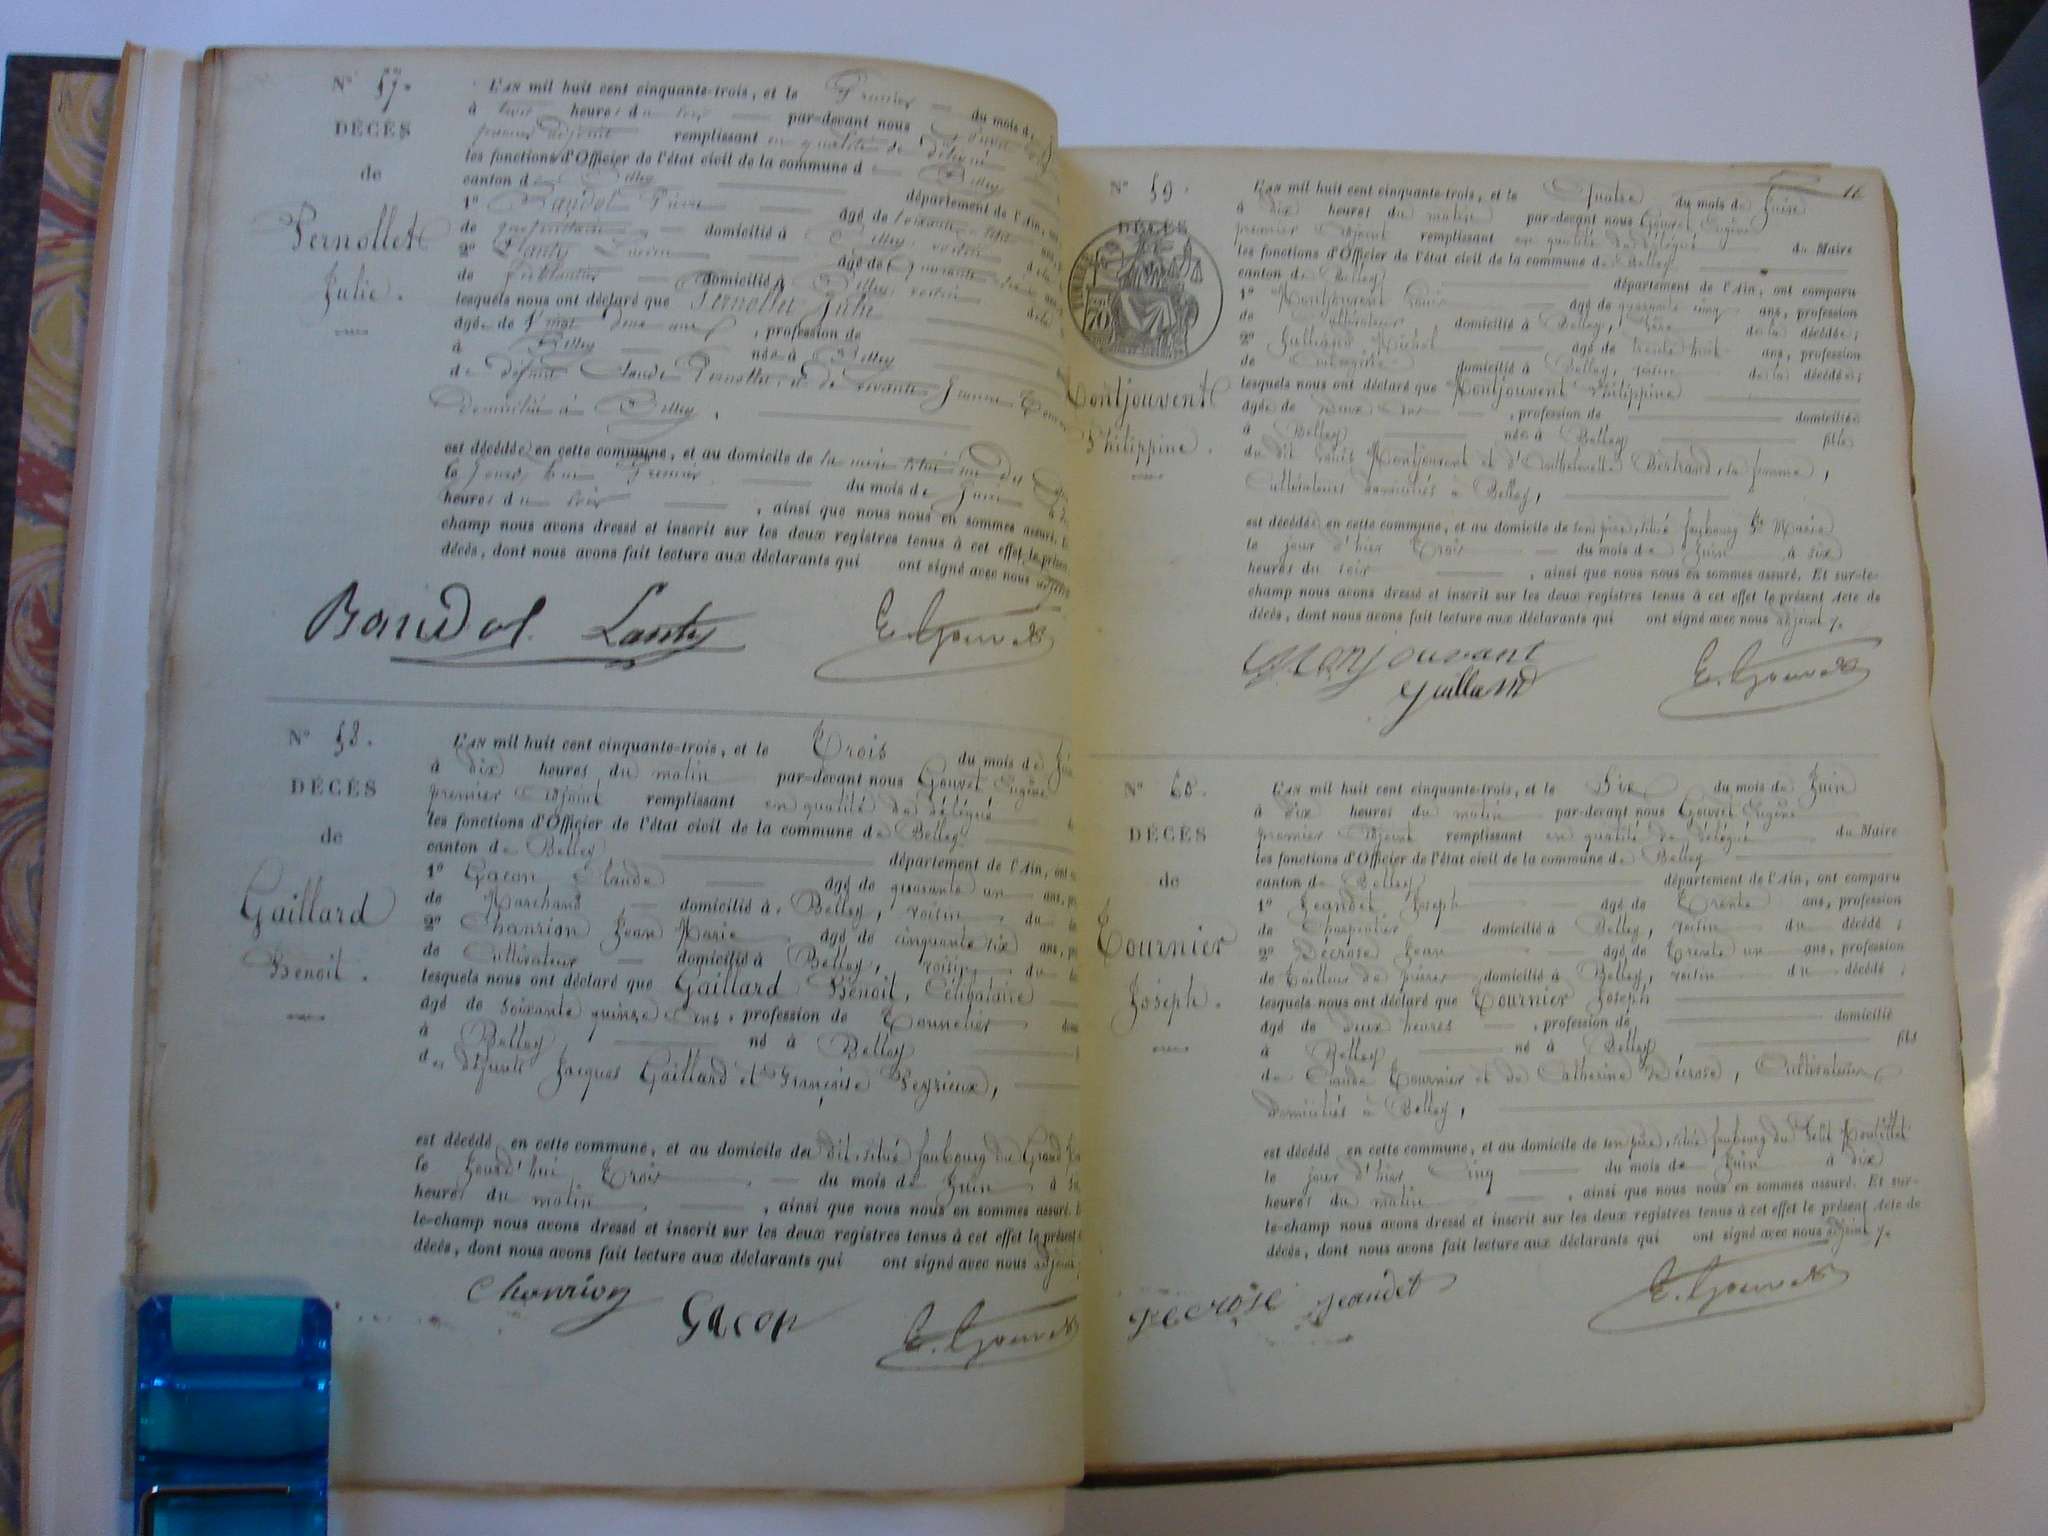 N° 57.
DÉCÈS
de
Pernollet
Julie.
L'AN mil huit cent cinquante-trois, et le Premier du mois d
à heures du soir par-devant nous
premier adjoint remplissant en qualité de délégué
les fonctions d'Officier de l'état civil de la commune d Belley
canton d Belley département de l'Ain,
1° Baudol Pierre âgé de soixante
de domicilié à Belley, voisin
2° Lanty âgé de quarante
de ferblantier domicilié à Belley, voisin
lesquels nous ont déclaré que Pernollet Julie
âgée de deux ans, profession de
à Belley née à Belley
de défunt Claude Pernollet, et de vivante Jeanne
domiciliée à Belley,
est décédée en cette commune, et au domicile de sa mère situé
le jourd'hui Premier du mois de Juin
heures du soir, ainsi que nous nous en sommes assuré.
champ nous avons dressé et inscrit sur les deux registres tenus à cet effet le présent
décès, dont nous avons fait lecture aux déclarants qui ont signé avec nous adjoint
Baudol Lanty E. Gouvet
N° 58.
DÉCÈS
de
Gaillard
Benoit.
L'AN mil huit cent cinquante-trois, et le Trois du mois de
à dix heures du matin par-devant nous Gouvet Eugène
premier adjoint remplissant en qualité de délégué
les fonctions d'Officier de l'état civil de la commune de Belley
canton de Belley département de l'Ain, ont
1° Gacon Claude âgé de quarante un ans,
de Marchand domicilié à Belley, voisin du
2° Chanrion Jean Marie âgé de cinquante six ans,
de Cultivateur domicilié à Belley, voisin du
lesquels nous ont déclaré que Gaillard Benoit, Célibataire
âgé de soixante quinze ans, profession de Tonnelier
à Belley né à Belley
des défunts Jacques Gaillard et Françoise Peyrieux,
est décédé en cette commune, et au domicile du dit, situé faubourg du Grand
le jourd'hui Trois du mois de Juin à
heures du matin, ainsi que nous nous en sommes assuré.
le-champ nous avons dressé et inscrit sur les deux registres tenus à cet effet le présent
décès, dont nous avons fait lecture aux déclarants qui ont signé avec nous adjoint
Chanrion Gacon E. Gouvet
11
N° 59.
DÉCÈS
70
Montjouvent
Philippine.
L'AN mil huit cent cinquante-trois, et le Quatre du mois de Juin
à dix heures du matin par-devant nous Gouvet Eugène
premier adjoint remplissant en qualité de délégué du Maire
les fonctions d'Officier de l'état civil de la commune de Belley
canton de Belley département de l'Ain, ont comparu
1° Montjouvent Louis âgé de quarante cinq ans, profession
de Cultivateur domicilié à Belley, père de la décédée;
2° Guilland Michel âgé de trente huit ans, profession
de domicilié à Belley, voisin de la décédée;
lesquels nous ont déclaré que Montjouvent Philippine
âgée de deux ans, profession de domiciliée
à Belley née à Belley fille
du dit Louis Montjouvent et d'Anthelmette Bertrand, sa femme,
Cultivateurs domiciliés à Belley,
est décédée en cette commune, et au domicile de son père, situé faubourg St Marie
le jour d'hier Trois du mois de Juin à six
heures du soir, ainsi que nous nous en sommes assuré. Et sur-le-
champ nous avons dressé et inscrit sur les deux registres tenus à cet effet le présent Acte de
décès, dont nous avons fait lecture aux déclarants qui ont signé avec nous adjoint
Monjouvant
Guilland E. Gouvet
N° 60.
DÉCÈS
de
Tournier
Joseph.
L'AN mil huit cent cinquante-trois, et le Six du mois de Juin
à dix heures du matin par-devant nous Gouvet Eugène
premier adjoint remplissant en qualité de délégué du Maire
les fonctions d'Officier de l'état civil de la commune de Belley
canton de Belley département de l'Ain, ont comparu
1° Jeandet Joseph âgé de Trente ans, profession
de Charpentier domicilié à Belley, voisin du décédé;
2° Décrose Jean âgé de Trente un ans, profession
de Tailleur de pierres domicilié à Belley, voisin du décédé;
lesquels nous ont déclaré que Tournier Joseph
âgé de deux heures, profession de domicilié
à Belley né à Belley fils
de Claude Tournier et de Catherine Décrose, Cultivateurs
domiciliés à Belley,
est décédé en cette commune, et au domicile de son père, situé faubourg du Petit
le jour d'hier Cinq du mois de Juin à dix
heures du matin, ainsi que nous nous en sommes assuré. Et sur-
le-champ nous avons dressé et inscrit sur les deux registres tenus à cet effet le présent Acte de
décès, dont nous avons fait lecture aux déclarants qui ont signé avec nous adjoint
Decrose Jeandet E. Gouvet